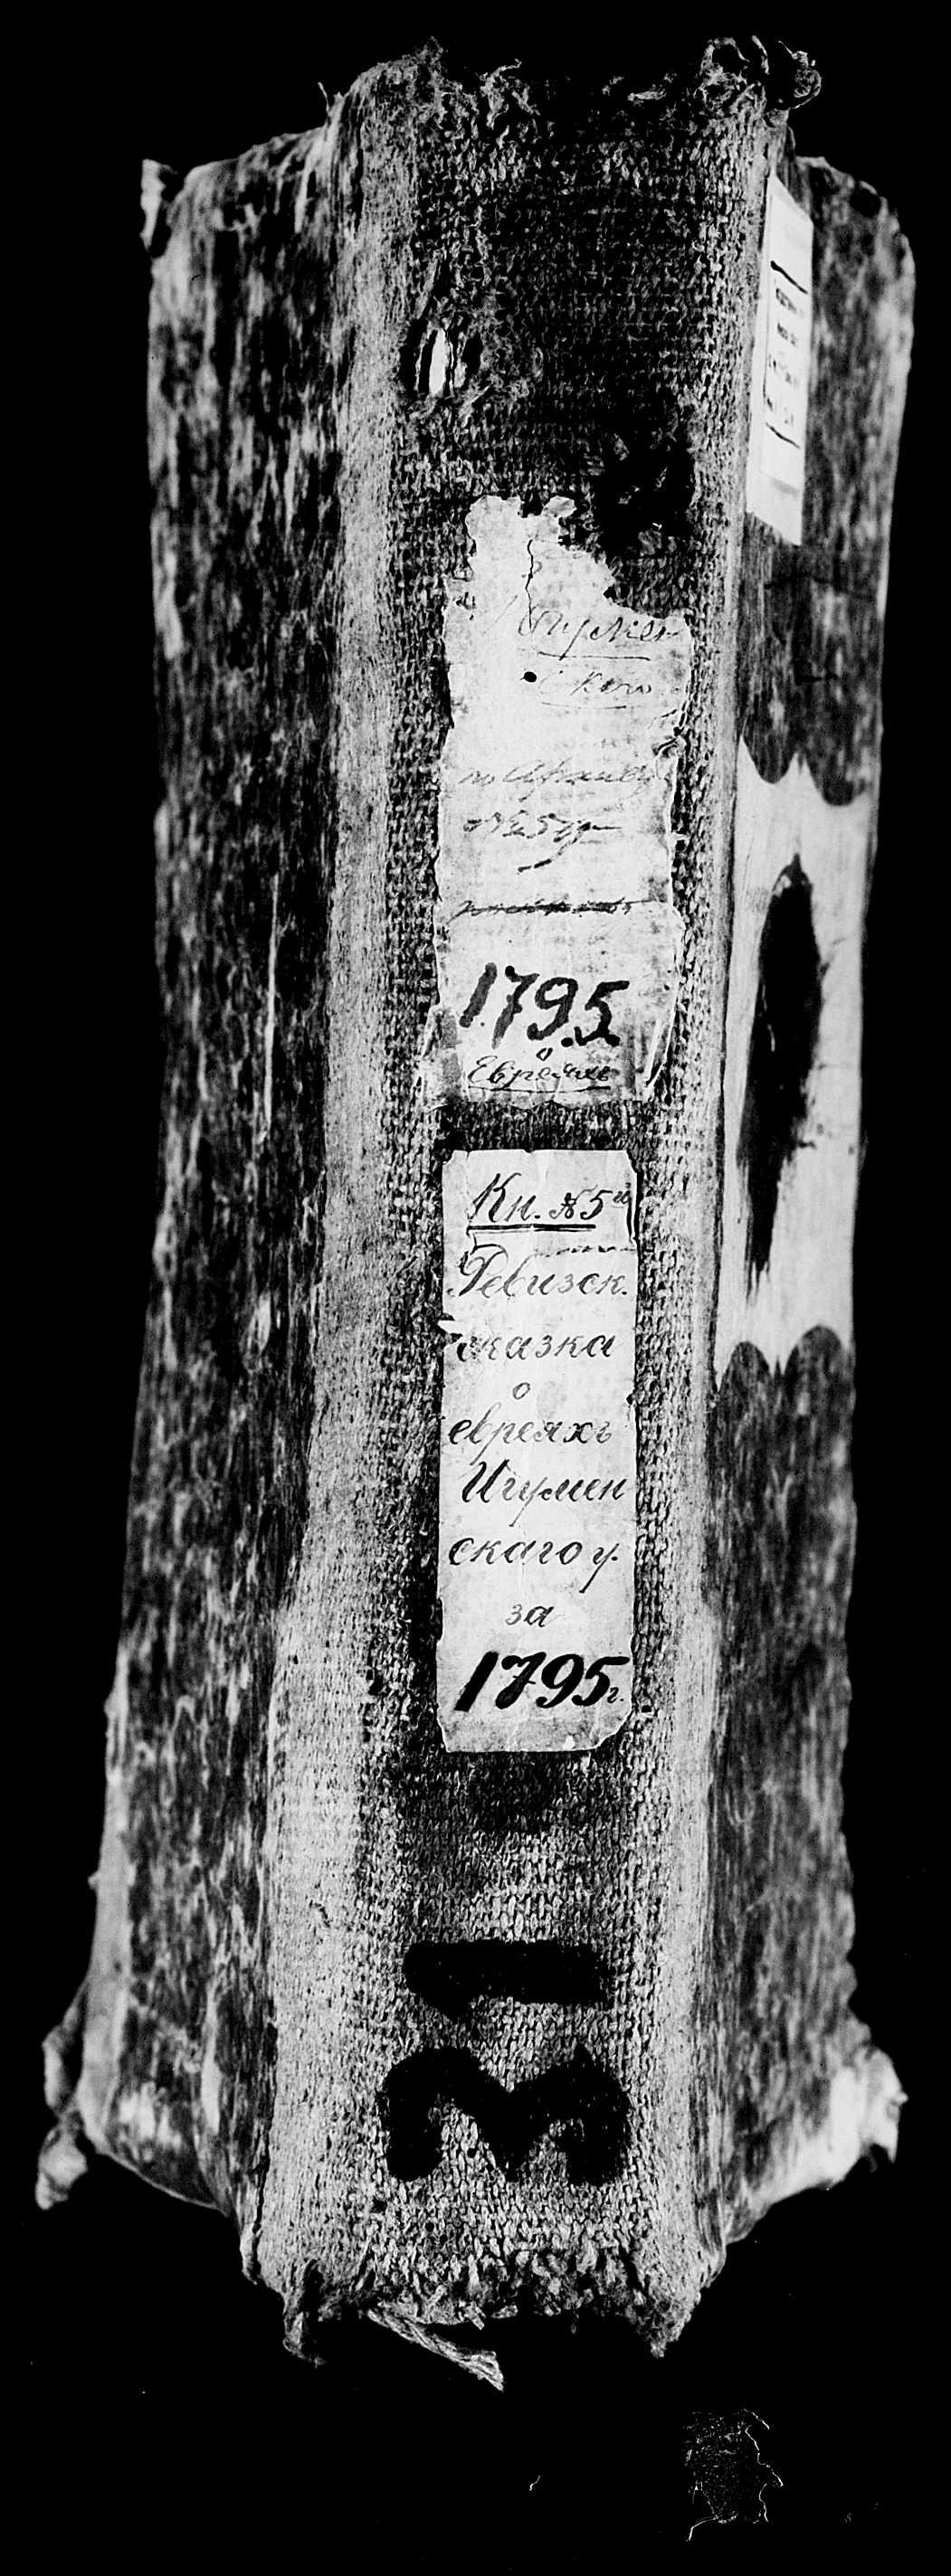 Игумен
скаго
по Архиву
1795
о
Евреяхъ
Кн. №5
Ревизск.
сказка
о
евреяхъ
Игумен
скаго у.
за
1795г.